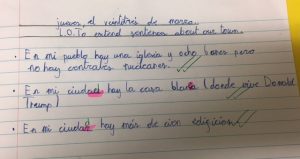 jueves, el veintitrés de marzo.
L.O. To extend sentences about our town.
• En mi pueblo hay una iglesia y ocho bares pero
no hay centrales nucleares.
• En mi ciudad hay la casa blanca (donde vive Donald
Trump)
• En mi ciudad hay más de cien edificios.